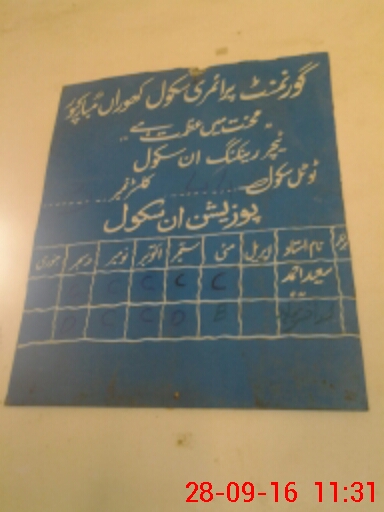 گورنمنٹ پرائمری سکول کھوراں مبارکپور
"محنت میں عظمت ہے"
ٹیچر رینکنگ ان سکول
ٹوٹل سکول کلسٹر نمبر
پوزیشن ان سکول
نمبر نام استاد اپریل مئی ستمبر اکتوبر نومبر دسمبر جنوری
سعید احمد C C C C
B D C C D
28-09-16 11:31